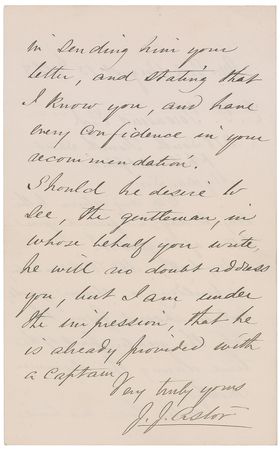 in sending him your
letter, and stating that
I know you, and have
every confidence in your
recommendation.
Should he desire to
see, the gentleman, in
whose behalf you write,
he will no doubt address
you, but I am under
the impression, that he
is already provided with
a Captain
Very truly yours
J. J. Astor